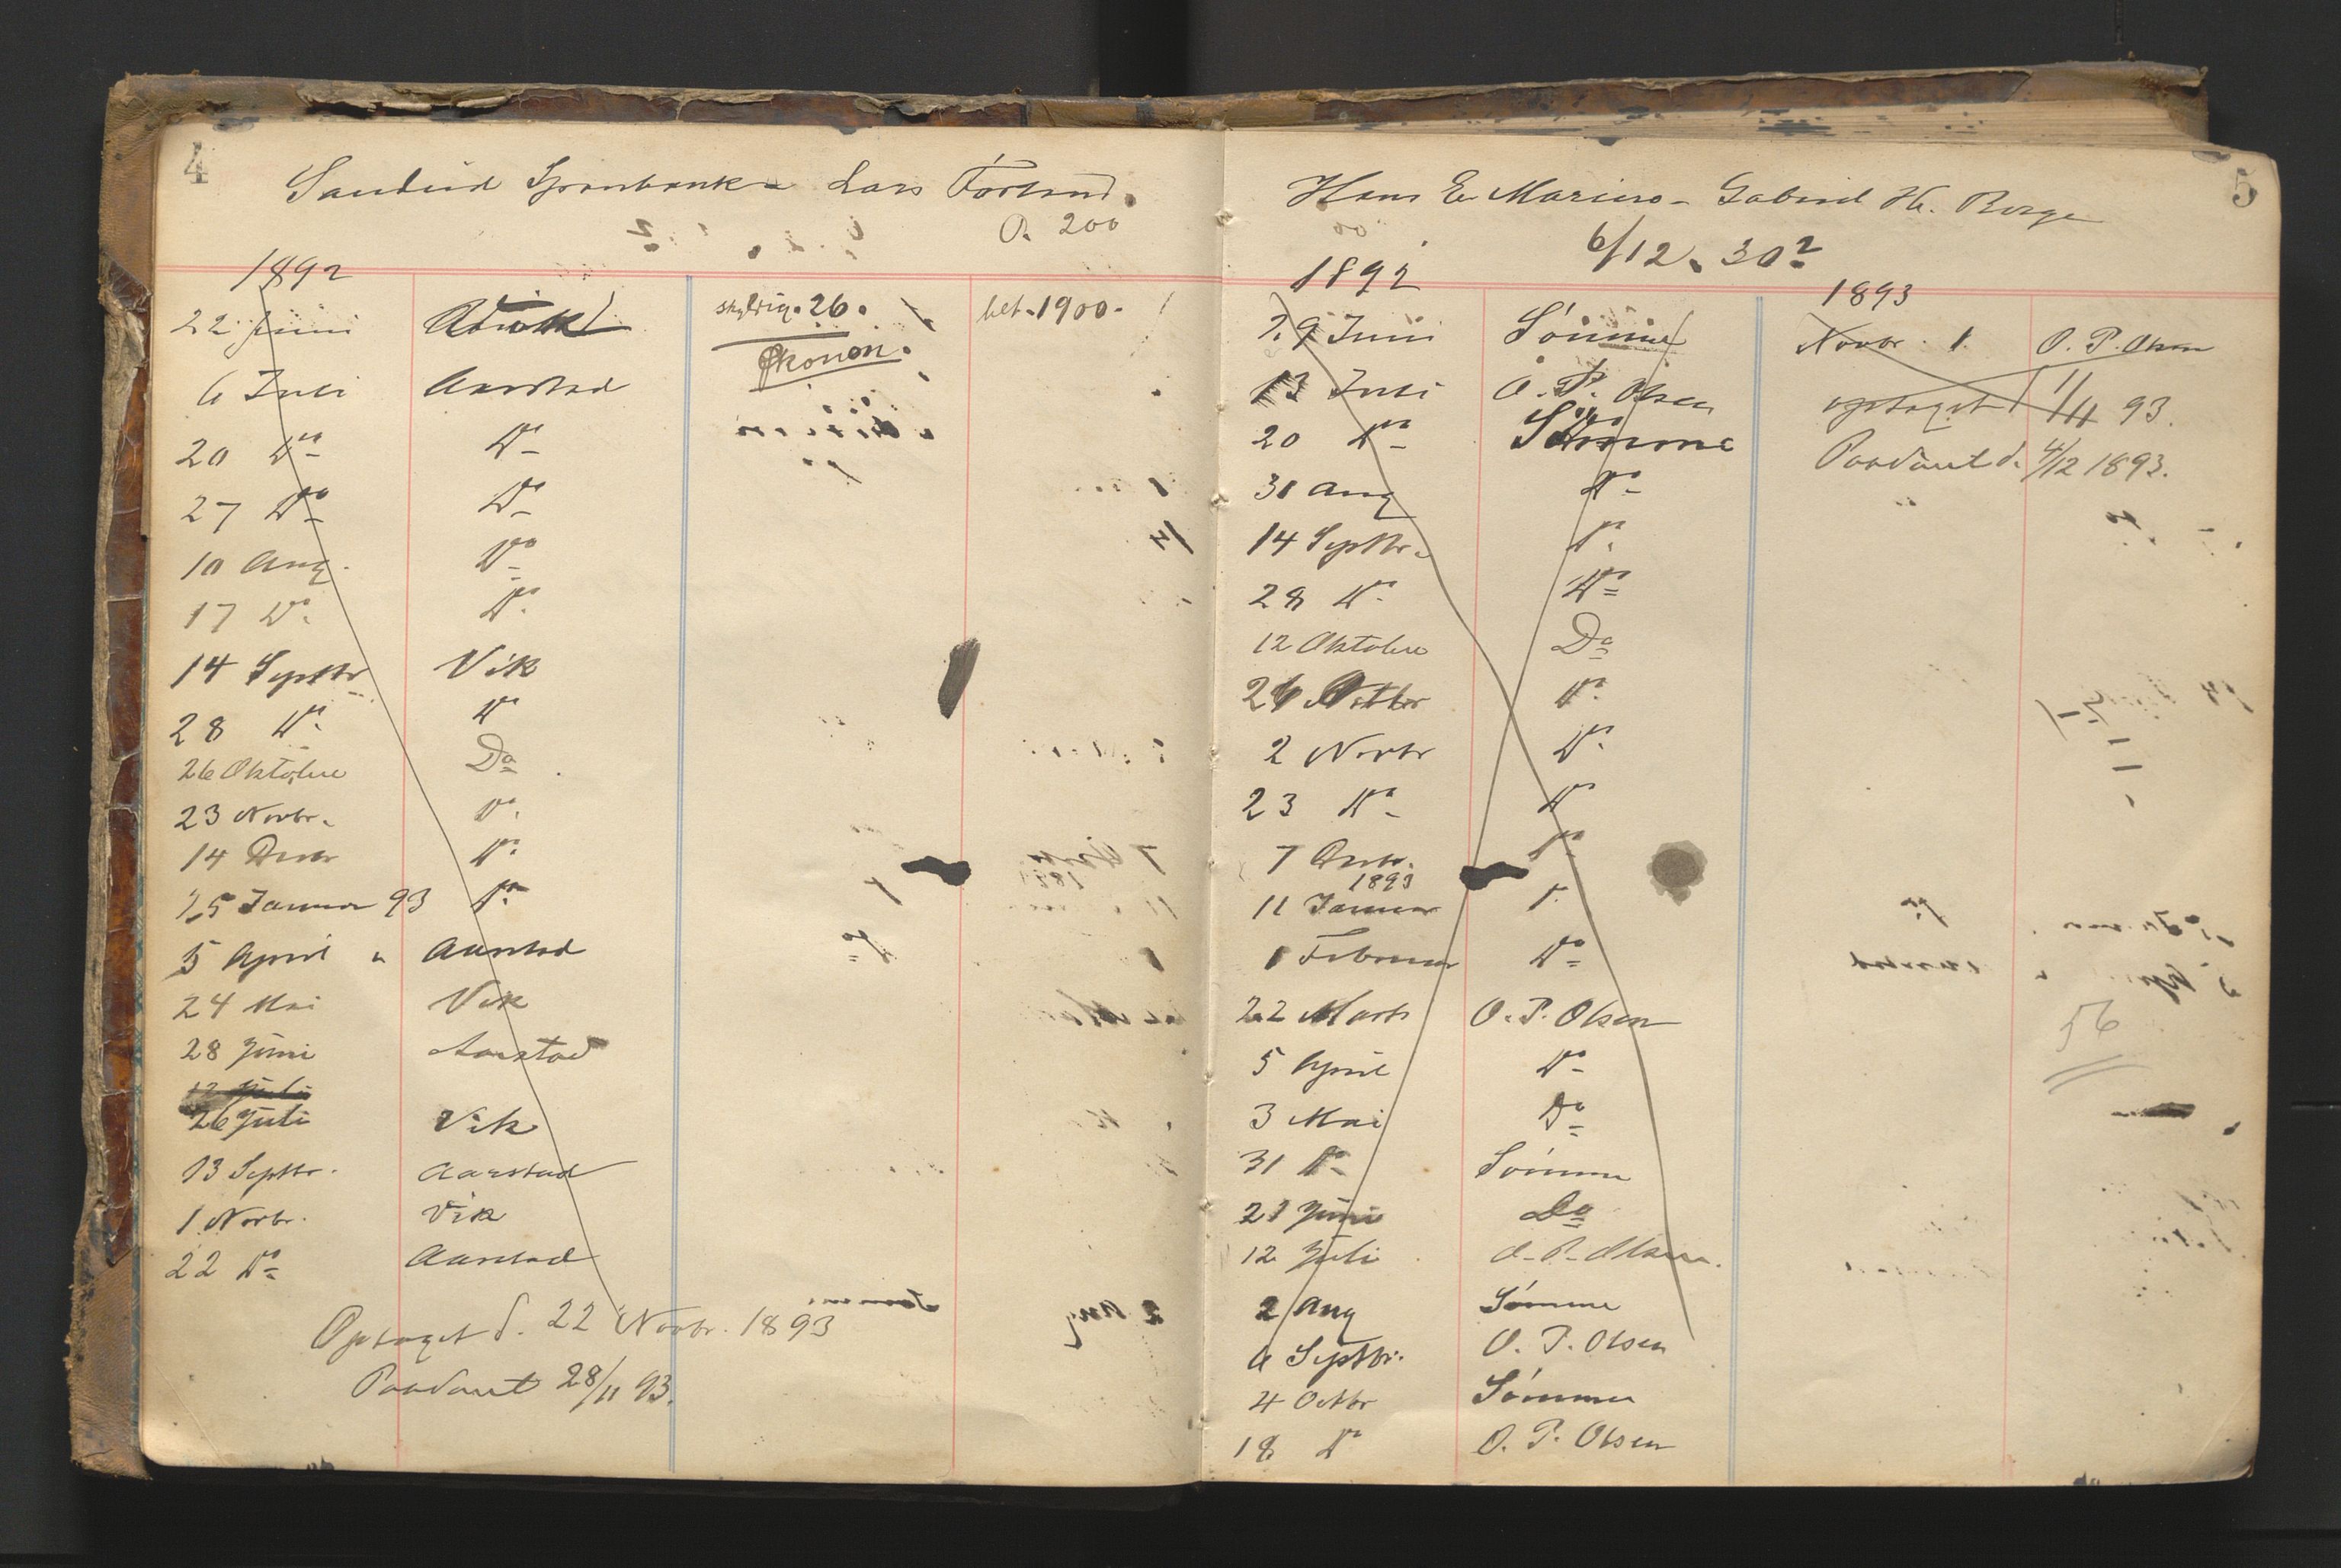 4
Sandeid Sparebank - Lars Førland.
O. 200
1892
22 Juni
skyldig. 26.
bet. 1900.
Økonon.
6 Juli Aarstad
20 Do Do
27 Do Do
10 Aug. Do
17 Do Do
14 Septbr Vik
28 Do Do
26 Oktober Do
23 Novbr. Do
14 Decbr Do
25 Januar 93 Do
5 April " Aarstad
24 Mai Vik
28 Juni Aarstad
12 Juli
26 Juli Vik
13 Septbr. Aarstad
1 Novbr. Vik
22 Do Aarstad
Optaget d. 22 Novbr. 1893
Paadømt 28/11 93.
5
Hans E Marius - Gabriel H. Berge
6/12. 30?
1892
29 Juni Sømme
13 Juli O. P. Olsen
20 Do Sømme
31 Aug Do
14 Septbr. Do
28 Do Do
12 Oktober Do
26 Octbr Do
2 Novbr Do
23 Do Do
7 Decbr. Do
1893
11 Januar Do
1 Februar Do
22 Marts O. P. Olsen
5 April Do
3 Mai Do
31 Do Sømme
21 Juni Do
12 Juli O. P. Olsen.
2 Aug Sømme
6 Septbr. O. P. Olsen
4 Octbr Sømme
18 Do O. P. Olsen
1893
Novbr. 1. O. P. Olsen
optaget 1/11 93.
Paadømt d. 4/12 1893.
56